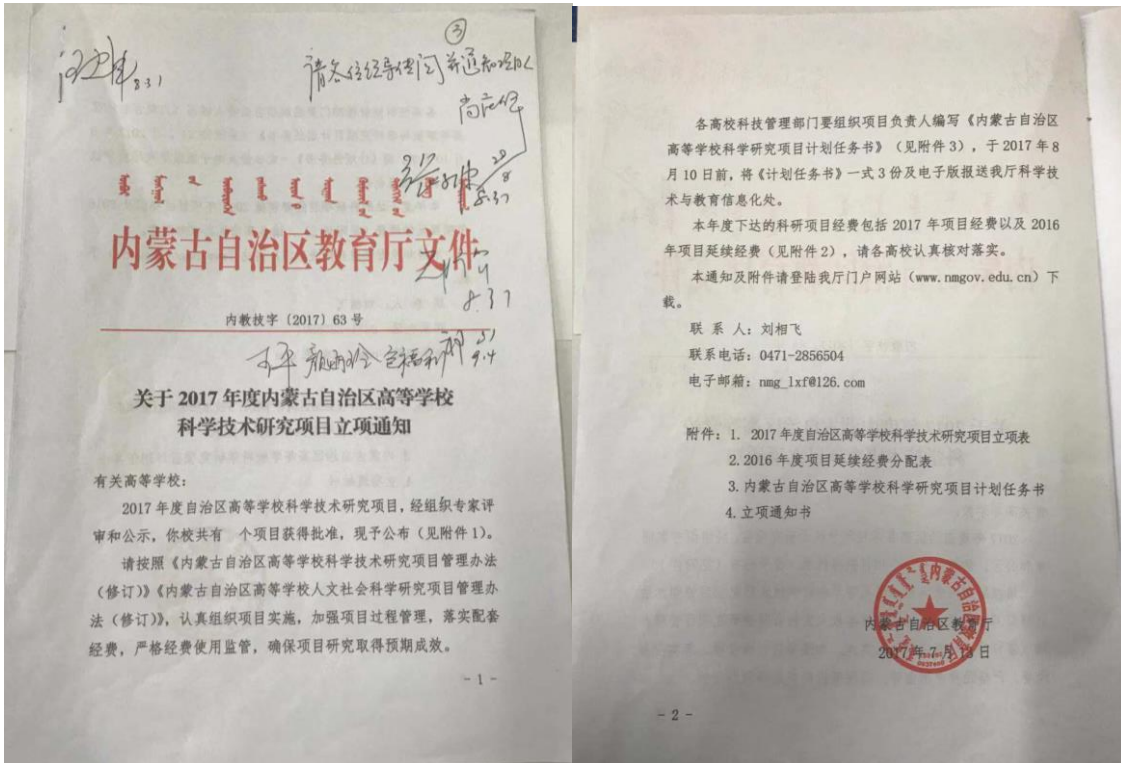 ③
请各位领导传阅并通知项目人
8.31
8.31
8.31
内蒙古自治区教育厅文件
内教技字〔2017〕63号
9.4
关于2017年度内蒙古自治区高等学校
科学技术研究项目立项通知
有关高等学校：
2017年度自治区高等学校科学技术研究项目，经组织专家评
审和公示，你校共有 个项目获得批准，现予公布（见附件1）。
请按照《内蒙古自治区高等学校科学技术研究项目管理办法
（修订）》《内蒙古自治区高等学校人文社会科学研究项目管理办
法（修订）》，认真组织项目实施，加强项目过程管理，落实配套
经费，严格经费使用监管，确保项目研究取得预期成效。
- 1 -
各高校科技管理部门要组织项目负责人编写《内蒙古自治区
高等学校科学研究项目计划任务书》（见附件3），于2017年8
月10日前，将《计划任务书》一式3份及电子版报送我厅科学技
术与教育信息化处。
本年度下达的科研项目经费包括2017年项目经费以及2016
年项目延续经费（见附件2），请各高校认真核对落实。
本通知及附件请登陆我厅门户网站（www.nmgov.edu.cn）下
载。
联 系 人：刘相飞
联系电话：0471-2856504
电子邮箱：nmg_lxf@126.com
附件：1. 2017年度自治区高等学校科学技术研究项目立项表
2.2016年度项目延续经费分配表
3.内蒙古自治区高等学校科学研究项目计划任务书
4.立项通知书
内蒙古自治区教育厅
2017年7月13日
- 2 -